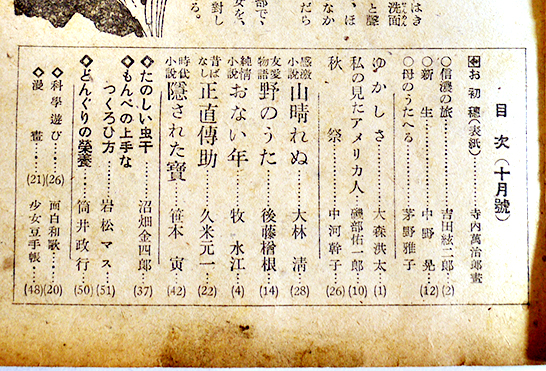 はき
洗面
と聲
ほ
だら
部で、
女を、
對する。
目次(十月號)
お初穗(表紙)……寺内萬治郎畫
◇信濃の旅……吉田絃二郎…(2)
◇新生……中野晃…(12)
◇母のうたへる……茅野雅子
ゆかしさ……大森洪太…(1)
私の見たアメリカ人…磯部佑一郎…(10)
秋祭……中河幹子…(26)
感激小說 山晴れぬ……大林清…(28)
友愛物語 野のうた……後藤楢根…(14)
純情小說 おない年……牧水江…(4)
昔ばなし 正直傳助……久米元一…(22)
時代小說 隱された寶……笹本寅…(42)
◇たのしい虫干……沼畑金四郎…(37)
◇もんぺの上手なつくろひ方……岩松マス…(51)
◇どんぐりの榮養……筒井政行…(50)
◇科學遊び……(26) 面白和歌…(20)
◇漫畫……(21) 少女豆手帳…(48)